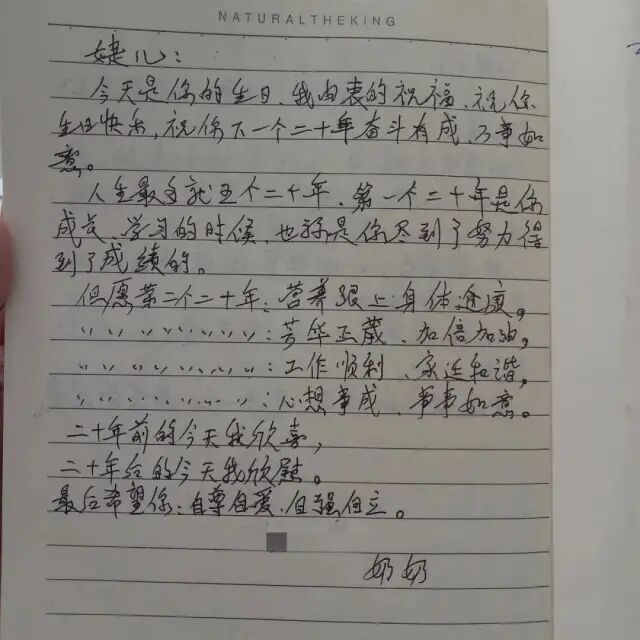 NATURALTHEKING
婕儿：
今天是你的生日、我由衷的祝福、祝你
生日快乐，祝你下一个二十年奋斗有成、万事如
意。
人生最多就五个二十年、第一个二十年是你
成长、学习的时候、也算是你尽到了努力得
到了成绩的。
但愿第二个二十年：营养跟上身体适度，
〃〃〃〃〃〃〃〃：芳华正茂、加倍加油，
〃〃〃〃〃〃〃〃：工作顺利、家庭和谐，
〃〃〃〃〃〃〃〃：心想事成、事事如意。
二十年前的今天我欣喜，
二十年后的今天我欣慰。
最后希望你：自尊自爱、自强自立。
奶奶